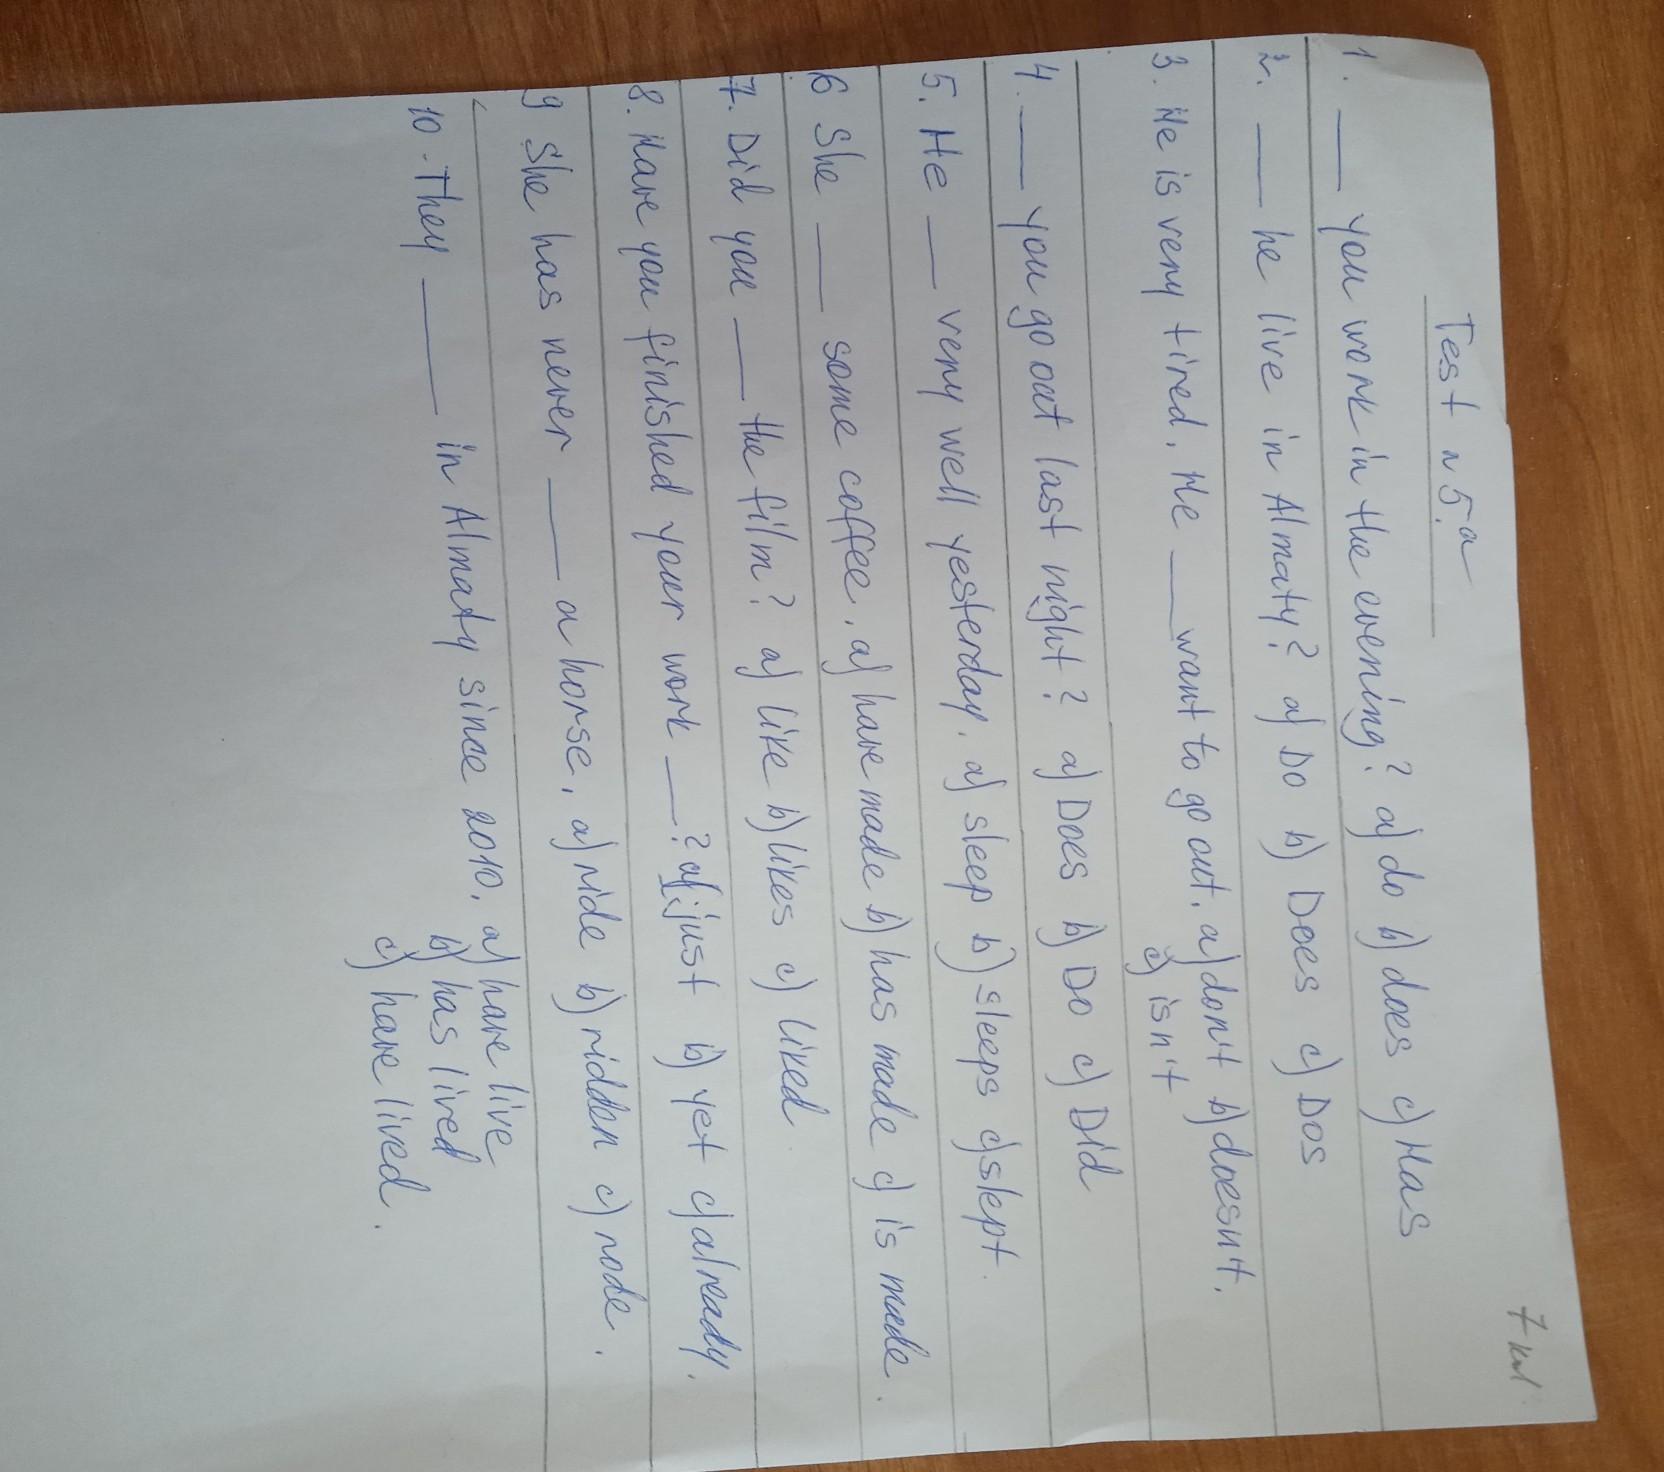 7 кл
Test № 5.a
1. ___ you work in the evening? a) do b) does c) Has
2. ___ he live in Almaty? a) Do b) Does c) Dos
3. He is very tired. He ___ want to go out. a) don't b) doesn't.
c) isn't
4. ___ you go out last night? a) Does b) Do c) Did
5. He ___ very well yesterday. a) sleep b) sleeps c) slept.
6 She ___ some coffee. a) have made b) has made c) is made.
7. Did you ___ the film? a) like b) likes c) liked.
8. Have you finished your work ___? a) just b) yet c) already.
9 She has never ___ a horse. a) ride b) ridden c) rode.
10. They ___ in Almaty since 2010. a) have live
b) has lived
c) have lived.